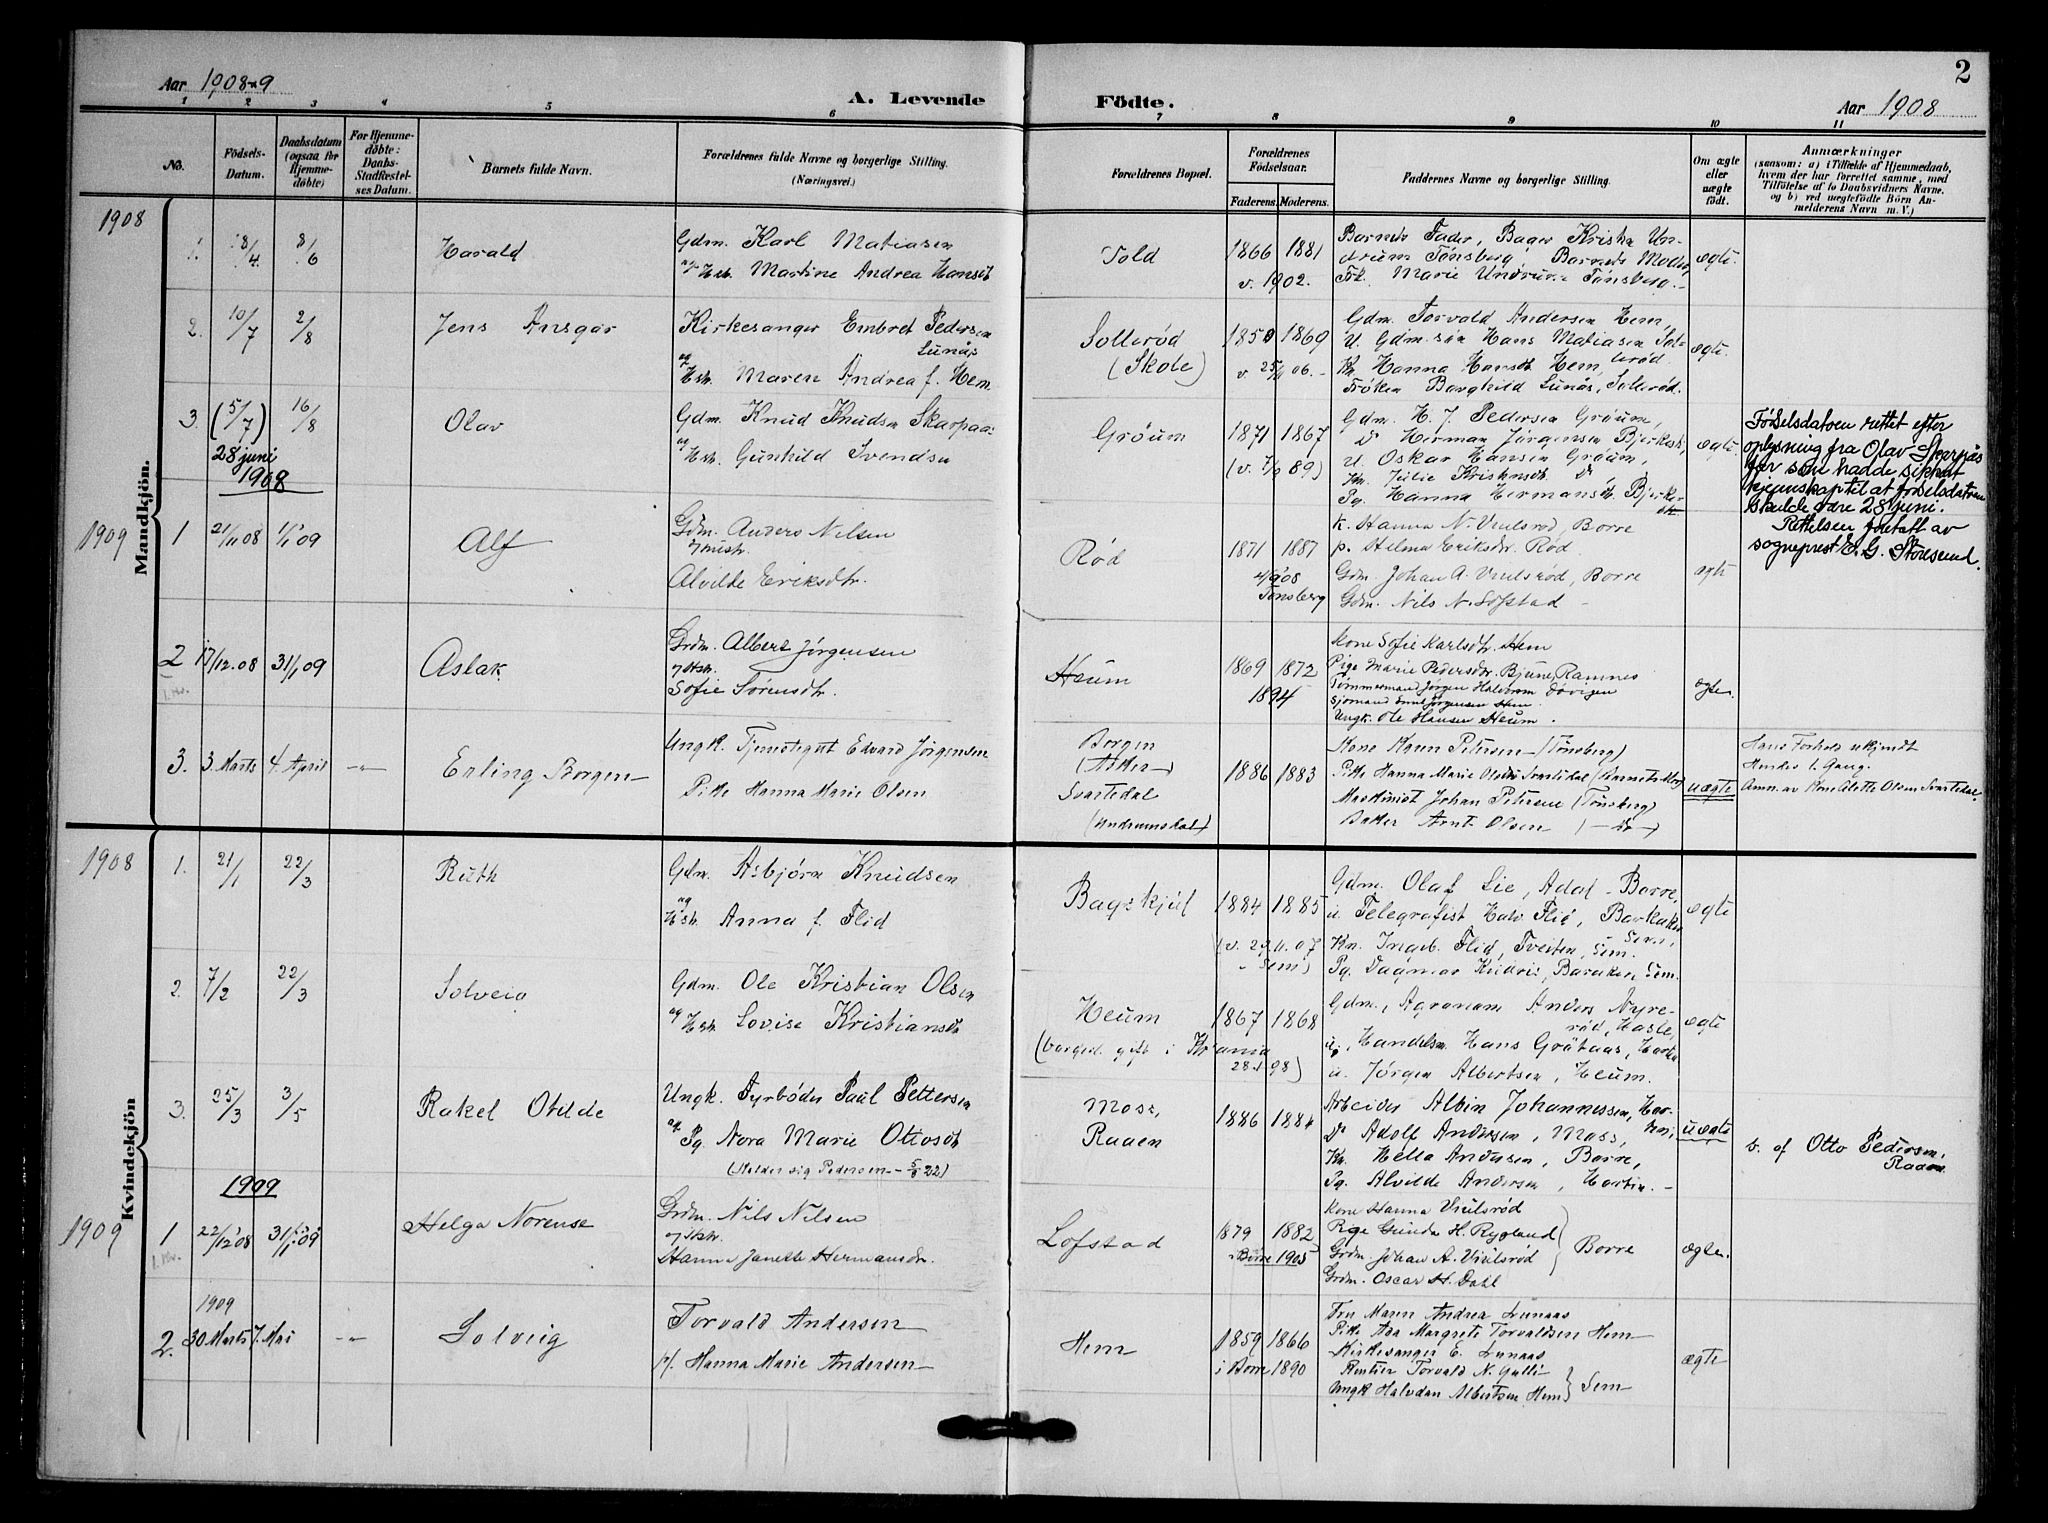 2
Aar 1908-9
A. Levende Födte.
Aar 1908
1 2 3 4 5 6 7 8 9 10 11
No.
Födsels-
Datum.
Daabsdatum
(ogsaa for
Hjemme-
döbte)
For Hjemme-
döbte:
Daabs-
Stadfæstel-
ses Datum.
Barnets fulde Navn.
Forældrenes fulde Navne og borgerlige Stilling.
(Næringsvei.)
Forældrenes Bopæl.
Forældrenes
Födselsaar.
Faderens. Moderens.
Faddernes Navne og borgerlige Stilling.
Om ægte
eller
uægte
födt.
Anmærkninger
(saasom: a) i Tilfælde af Hjemmedaab,
hvem der har forrettet samme, med
Tilföielse af to Daabsvidners Navne,
og b) ved uægtefödte Börn An-
melderens Navn m. V.)
Mandkjön.
1908
1. 8/4 8/6 Harald
Gdm. Karl Matiasen
og Hst. Martine Andrea Hansdt
Told
1866 1881
v. 1902.
Barnets Fader, Bager Kristen Un-
drum Tønsberg, Barnets Moder,
Frk. Marie Undrum Tønsberg.
ægte.
2. 10/7 2/8 Jens Ansgar
Kirkesanger Embret Pedersen
Lunås
og Hst. Maren Andrea f. Hem.
Sollerød
(Skole)
1850 1869
v. 25/ 06.
Gdm. Torvald Andersen Hem,
U. Gdm. søn Hans Matiasen Sol-
lerød.
Kn. Hanna Hansdt Hem,
Frøken Borghild Lunås, Solerød.
ægte.
3. (5/7) 16/8 Olav
28 juni
1908
Gdm. Knud Knudsen Skarpaas
og Hst. Gunhild Svendsen
Grøum
1871 1867
(v. 7/9 89)
Gdm. H. J. Pedersen Grøum,
Do Herman Jørgensen Bjerkest,
U. Oskar Hansen Grøum,
Kn. Julie Kristensdt Do,
Pg. Hanna Hermansdt. Bjerke-
ægte
Fødselsdatoen rettet efter
oplysning fra Olav Skarpås
før som hadde sikkut
kjennskap til at fødselsdatoen
skulde være 28 juni.
Rettelsen foretatt av
sogneprest E. G. Storesund.
1909
1 21/11 08 1/1 09 Alf
Gdm. Anders Nilsen
Alvilde Eriksdtr.
Rød
1871 1887
4/9 08
Tønsberg
K. Hanna N. Viulsrød, Borre
p. Hilma Eriksdr. Rød
Gdm. Johan A. Viulsrød, Borre
Gdm. Nils N. Lofstad
ægte
2 17/12.08 31/1 09 Aslak
Grdm. Albert Jørgensen
og Hst.
Sofie Sörensdtr.
Heum
1869 1872
1894
Kone Sofie Karlsdtr. Hem
Pige Marie Pedersdtr. Bjune, Ramnes
Tømmermand Jørgen Halvorsen
Sjömand Emil Jørgensen Hem
Ungk. Ole Hansen Heum.
ægte.
3. 3. Marts 4. April Erling Borgen
Ungk. Tjenestegut Edvard Jørgensen
Pike Hanna Marie Olsen
Borgen
Svartedal
(Undrumsdal)
1886 1883
Kone Karen Petersen (Tønsberg)
Pike Hanna Marie Olsen Svartedal (Barnets Mor)
Maskinist Johan Petersen (Tønsberg)
Arnt Olsen
uægte
Hans Forhold ukjendt
Hendes 1. Gang.
Anm. av Kone Alette Olsen Svartedal
Kvindekjön
1908
1. 21/1 22/3 Ruth
Gdm. Asbjørn Knudsen
og Hst. Anna f. Flid
Bagskjul
1884 1885
(v. 11. 07
Sem)
Gdm. Olaf Lie, Adal - Borre,
u. Telegrafist Halv. Flid, Barkaker
Sem,
Kn. Ingeb. Flid, Tveiten, Sem.
Pg. Dagmar Barkaker Sem.
ægte
2. 7/2 22/3 Solveig
Gdm. Ole Kristian Olsen
og Hst. Lovise Kristiansdt
Heum
(borgerl. gift i Kr ania
28-1 98)
1867 1868
Gdm., Agronom Anders Nyre-
rød, Hasle,
u. Handelsm Hans Gråtaas,
u. Jørgen Albertsen, Heum.
ægte
3. 25/3 3/5 Rakel Otelde
Ungk. Fyrbøder Paul Pettersen
og Pg. Nora Marie Ottosdt
(Kalder sig Pedersen - 5/8 22)
Moss,
Raaen
1886 1884
Arbeider Albin Johannessen, Hor-
ten,
Do Adolf Andersen, Moss,
Kn. Hella Andersen, Borre,
Pg. Alvilde Andersen, Horten.
uægte
v. af Otto Pedersen,
Raaen
1909
1909
1 22/12 08 31/1 09 Helga Norense
Grdm. Nils Nilsen
og Hst.
Hanna Janette Hermansdr.
Lofstad
1879 1882
i Borre 1905
Kone Hanna Viulsrød
Pige Gunda H. Rygland
Grdm. Johan A. Viulsrød
Grdm. Oscar H. Dahl
Borre
ægte.
1909
2. 30 Marts 7. Mai Solveig
Torvald Andersen
Hanna Marie Andersen
Hem
1859 1866
i Borre 1890
Fru Maren Andrea Lunaas
Pike Ada Margrete Torvaldsen Hem
Kirkesanger E. Lunaas
Rentier Torvald N. Gulli
Ungk Halvdan Albertsen Hem
Sem
ægte